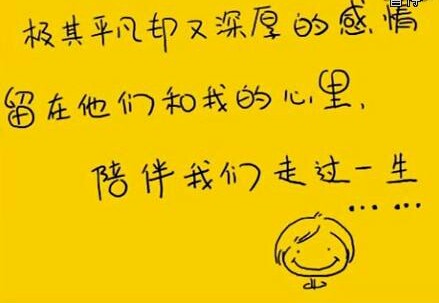 极其平凡却又深厚的感情
留在他们和我的心里，
陪伴我们走过一生
……